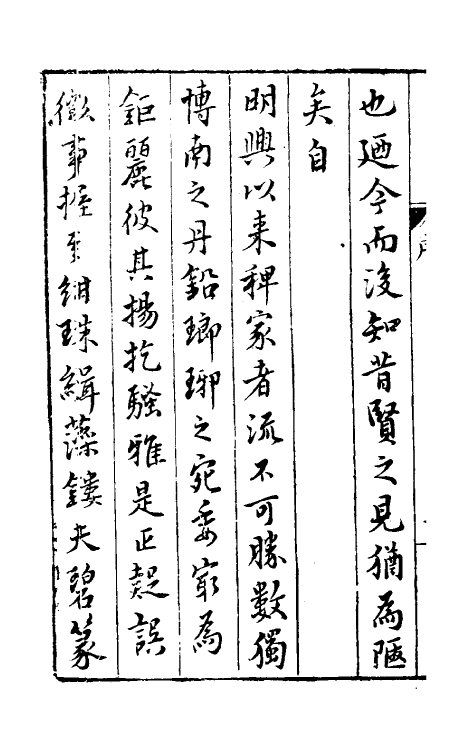 也廼今而後知昔賢之見猶為陋
矣自
明興以来稗家者流不可勝數獨
博南之丹鉛瑯琊之宛委窮為
鉅麗彼其揚扢騷雅是正踳誤
徵事握紺珠緝藻鏤夫碧篆